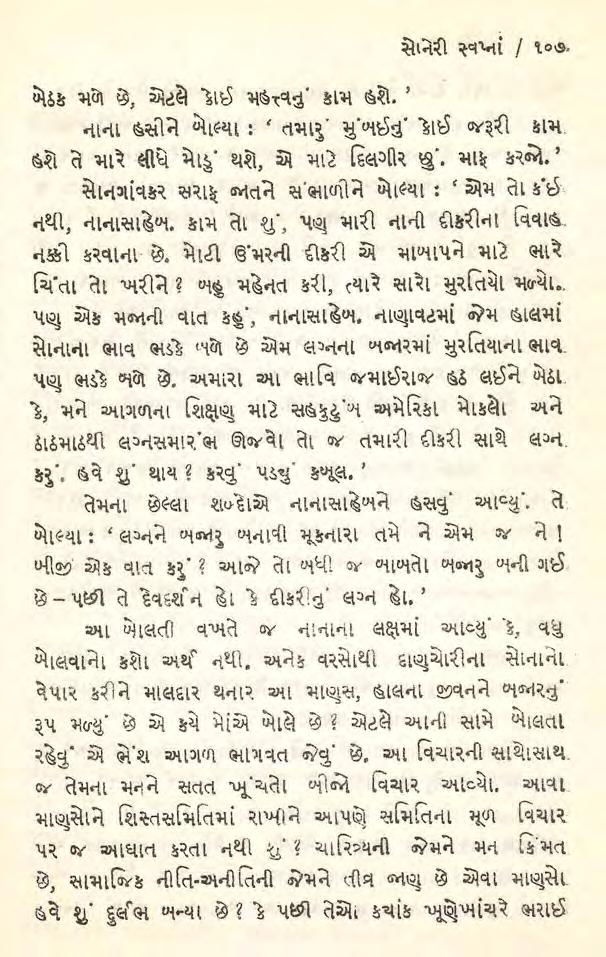 સોનેરી સ્વપ્નાં / ૧૦૭
બેઠક મળે છે, એટલે કોઈ મહત્ત્વનું કામ હશે.’
નાના હસીને બોલ્યા : ‘ તમારું મુંબઈનું કોઈ જરૂરી કામ
હશે તે મારે લીધે મોડું થશે, એ માટે દિલગીર છું. માફ કરજો.’
સોનગાંવકર સરાફ જાતને સંભાળીને બોલ્યા : ‘ એમ તો કંઈ
નથી, નાનાસાહેબ. કામ તો શું, પણ મારી નાની દીકરીના વિવાહ
નક્કી કરવાના છે. મોટી ઉંમરની દીકરી એ માબાપને માટે ભારે
ચિંતા તો ખરીને ? બહુ મહેનત કરી, ત્યારે સારો મુરતિયો મળ્યો.
પણ એક મજાની વાત કહું, નાનાસાહેબ. નાણાવટમાં જેમ હાલમાં
સોનાના ભાવ ભડકે બળે છે એમ લગ્નના બજારમાં મુરતિયાના ભાવ
પણ ભડકે બળે છે. અમારા આ ભાવિ જમાઈરાજ હઠ લઈને બેઠા
કે, મને આગળના શિક્ષણ માટે સહકુટુંબ અમેરિકા મોકલો અને
ઠાઠમાઠથી લગ્નસમારંભ ઊજવો તો જ તમારી દીકરી સાથે લગ્ન
કરું. હવે શું થાય ? કરવું પડ્યું કબૂલ. ’
તેમના છેલ્લા શબ્દોએ નાનાસાહેબને હસવું આવ્યું. તે
બોલ્યા : ‘ લગ્નને બજારુ બનાવી મૂકનારા તમે ને એમ જ ને !
બીજી એક વાત કરું ? આજે તો બધી જ બાબતો બજારુ બની ગઈ
છે – પછી તે દેવદર્શન હો કે દીકરીનું લગ્ન હો. ’
આ બોલતી વખતે જ નાનાના લક્ષમાં આવ્યું કે, વધુ
બોલવાનો કશો અર્થ નથી. અનેક વરસોથી દાણચોરીના સોનાનો
વેપાર કરીને માલદાર થનાર આ માણસ, હાલના જીવનને બજારનું
રૂપ મળ્યું છે એ કયે મોંએ બોલે છે ? એટલે આની સામે બોલતા
રહેવું એ ભેંશ આગળ ભાગવત જેવું છે. આ વિચારની સાથોસાથ
જ તેમના મનને સતત ખૂંચતો બીજો વિચાર આવ્યો. આવા
માણસોને શિસ્તસમિતિમાં રાખીને આપણે સમિતિના મૂળ વિચાર
પર જ આઘાત કરતા નથી શું ? ચારિત્ર્યની જેમને મન કિંમત
છે, સામાજિક નીતિ-અનીતિની જેમને તીવ્ર જાણ છે એવા માણસો
હવે શું દુર્લભ બન્યા છે ? કે પછી તેઓ કચાંક ખૂણેખાંચરે ભરાઈ